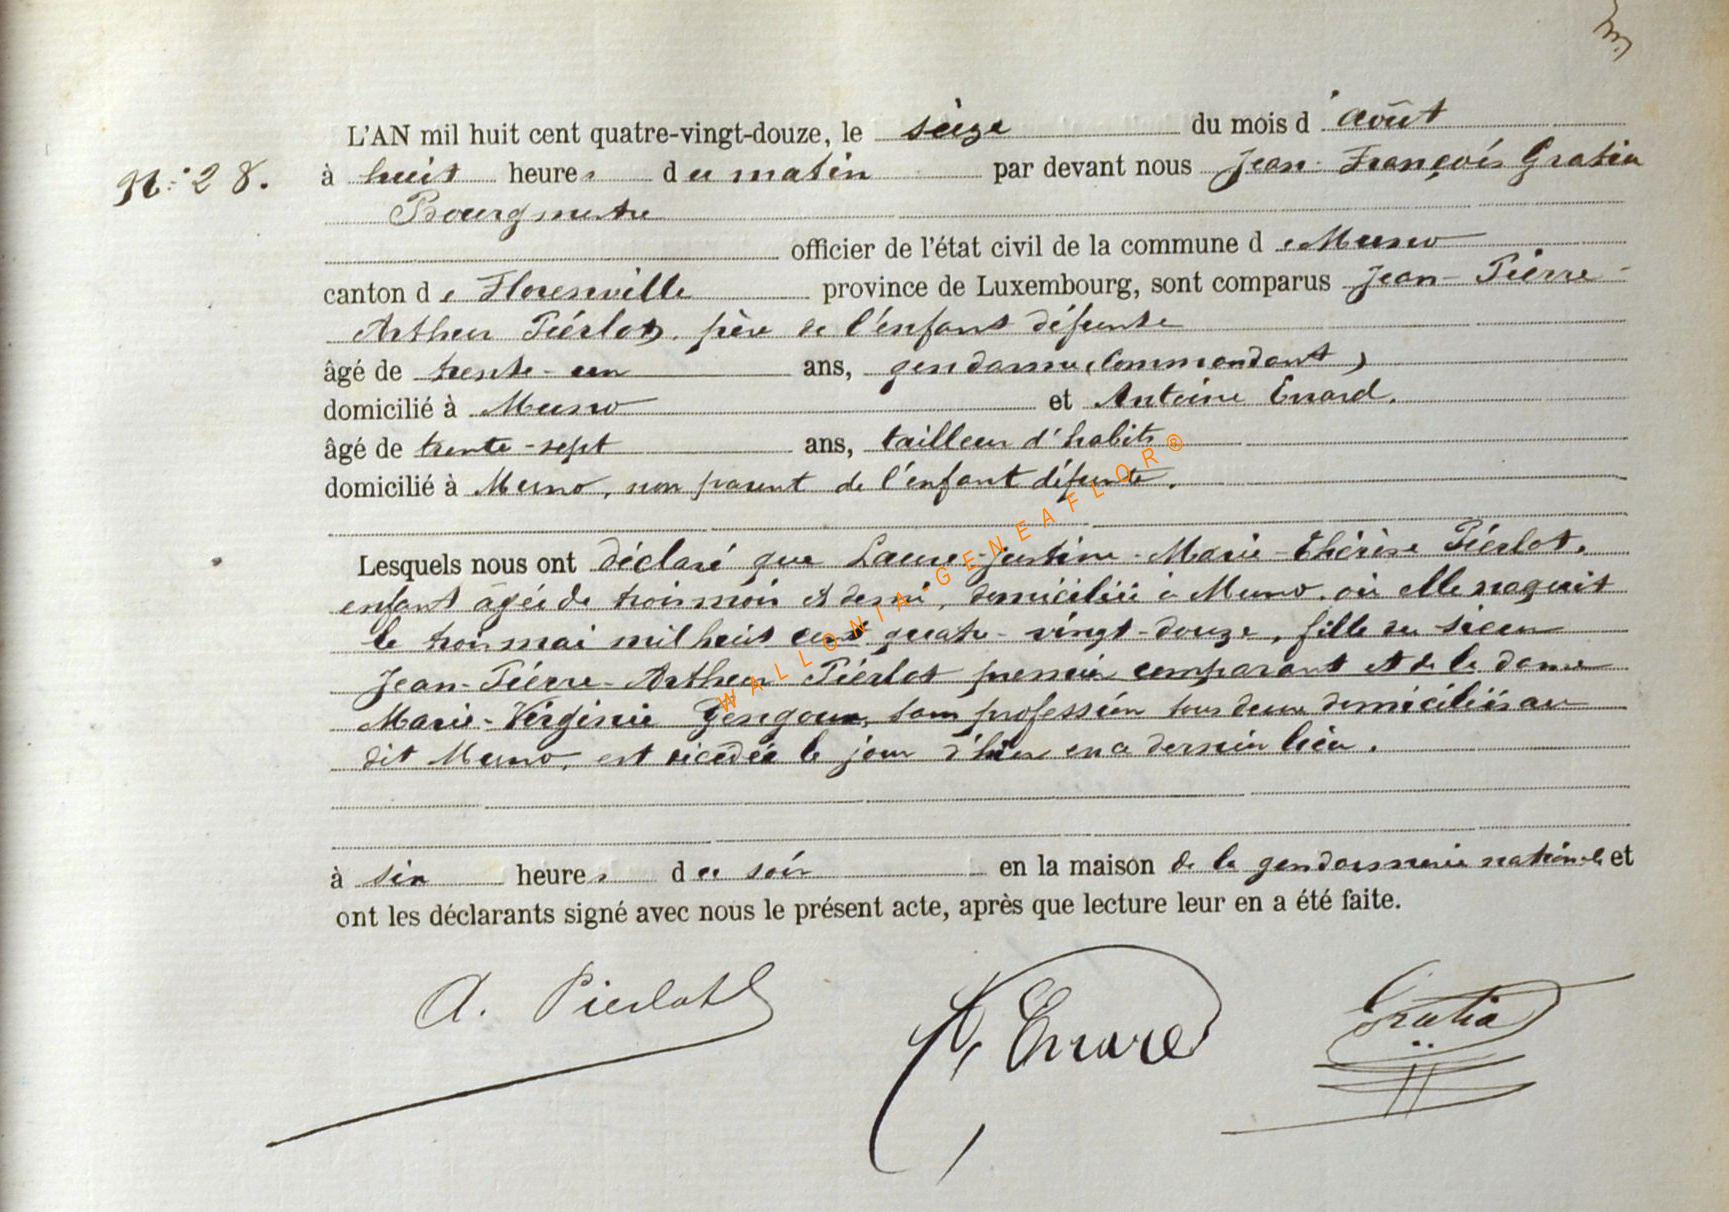 L'AN mil huit cent quatre-vingt-douze, le seize du mois d'août
N° 28. à huit heures du matin par devant nous Jean-François Gratia
Bourgmestre
officier de l'état civil de la commune de Muno
canton de Florenville province de Luxembourg, sont comparus Jean-Pierre-
Arthur Piérlot, père de l'enfant défunte
âgé de trente-un ans, gendarme (Commandant)
domicilié à Muno et Antoine Errard,
âgé de trente-sept ans, tailleur d'habits
domicilié à Muno, non parent de l'enfant défunte.
Lesquels nous ont déclaré que Laure-Justine-Marie-Thérèse Piérlot,
enfant âgée de trois mois et demi, domiciliée à Muno, où elle naquit
le trois mai mil huit cent quatre-vingt-douze, fille du sieur
Jean-Piérre-Arthur Piérlot premier comparant et de la dame
Marie-Virginie Gengoux, sans profession tous deux domiciliés au
dit Muno, est décédée le jour d'hier en a dernier lieu.
à six heures du soir en la maison de la gendarmerie nationale et
ont les déclarants signé avec nous le présent acte, après que lecture leur en a été faite.
A. Pierlot A. Errard Gratia
WALLONIA-GENEAFLOR®